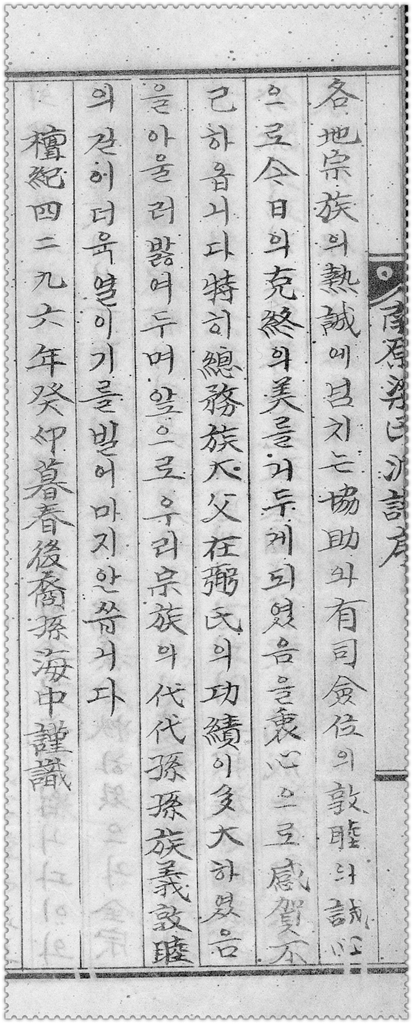 南原梁氏派譜序
各地宗族의熱誠에넘치는協助와有司僉位의敦睦의誠心
으로今日의克終의美를거두게되였음을衷心으로感賀不
已하옵니다特히總務族大父在弼氏의功績이多大하였음
을아울러밝여두며앞으로우리宗族의代代孫孫族義敦睦
의길이더욱열이기를빌어마지안씀니다
檀紀四二九六年癸卯暮春後裔孫海中謹識